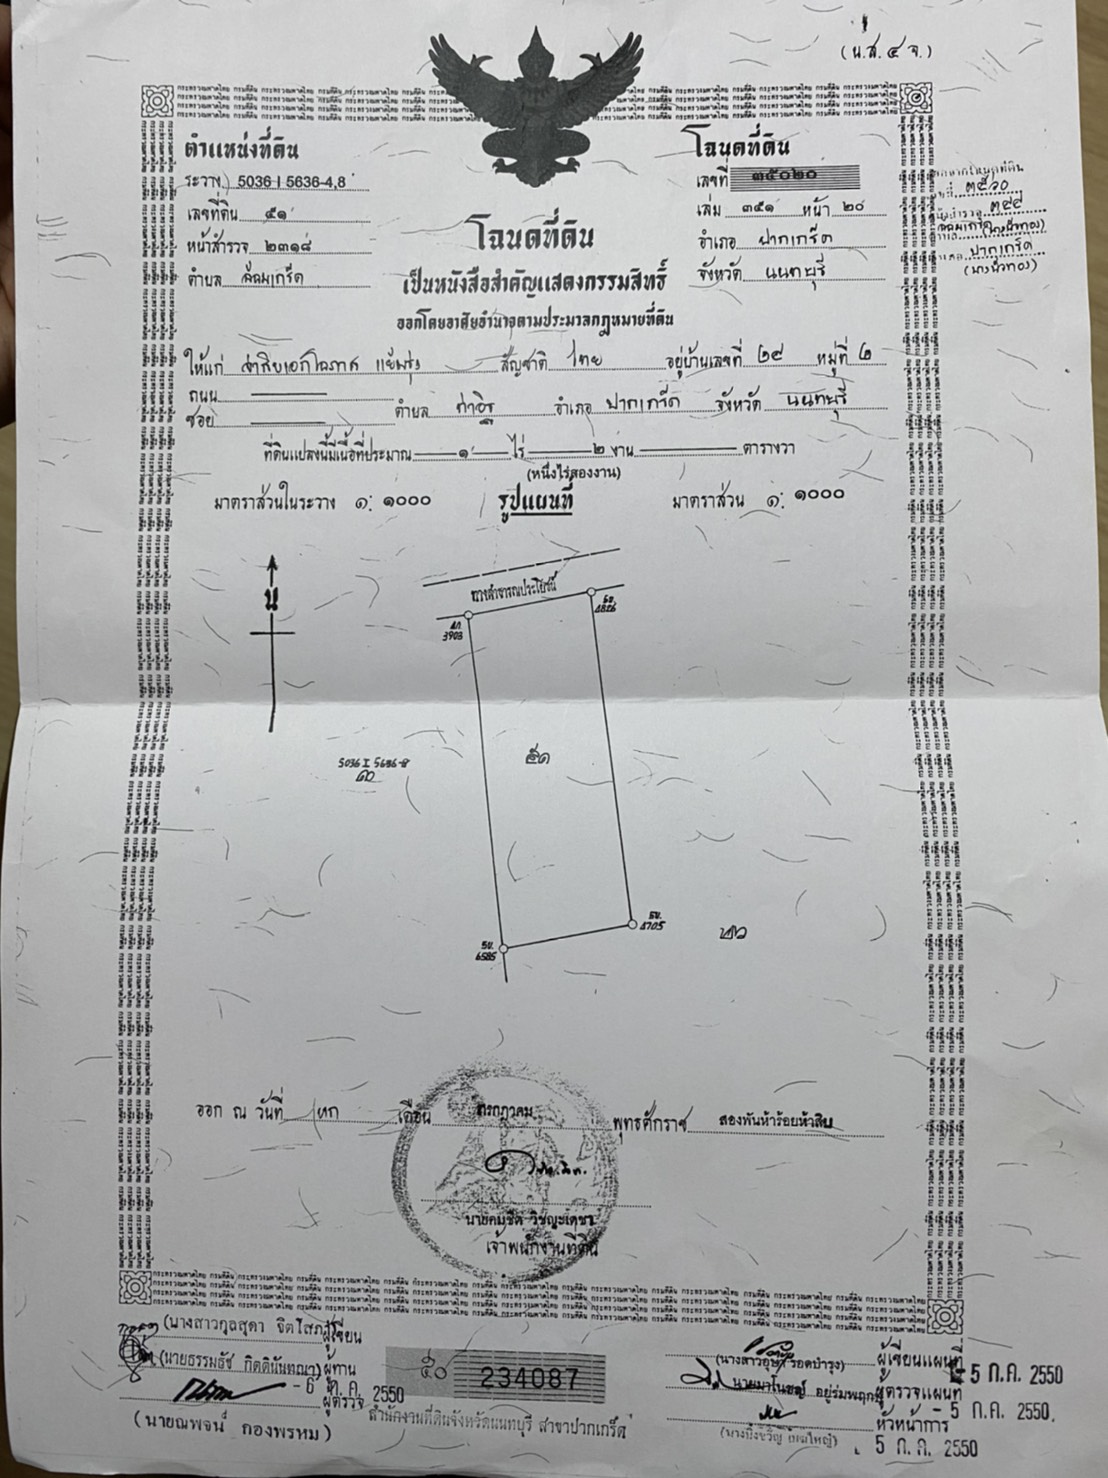 (น.ส. ๔ จ.)
ตำแหน่งที่ดิน
ระวาง 5036 I 5636-4,8
เลขที่ดิน ๕๑
หน้าสำรวจ ๒๓๑๘
ตำบล คลองเกร็ด
โฉนดที่ดิน
เลขที่ ๓๕๐๒๐
เล่ม ๓๕๑ หน้า ๒๐
อำเภอ ปากเกร็ด
จังหวัด นนทบุรี
ปากเกร็ด
โฉนดที่ดิน
เป็นหนังสือสำคัญแสดงกรรมสิทธิ์
ออกโดยอาศัยอำนาจตามประมวลกฎหมายที่ดิน
ให้แก่ สัญชาติ ไทย อยู่บ้านเลขที่ ๒๙ หมู่ที่ ๒
ถนน
ซอย ตำบล ท่าอิฐ อำเภอ ปากเกร็ด จังหวัด นนทบุรี
ที่ดินแปลงนี้มีเนื้อที่ประมาณ ๑ ไร่ ๒ งาน ตารางวา
(หนึ่งไร่สองงาน)
มาตราส่วนในระวาง ๑: ๑๐๐๐ รูปแผนที่ มาตราส่วน ๑: ๑๐๐๐
น
ทางสาธารณประโยชน์
3903
4826
๕๑
5036 I 5636-8
4705
6585
ออก ณ วันที่ หก เดือน กรกฎาคม พุทธศักราช สองพันห้าร้อยห้าสิบ
เจ้าพนักงานที่ดิน
(นางสาวกุลสุดา จิตโสภา) ผู้เขียน
ผู้ทาน
- 6 ก.ค. 2550
ผู้ตรวจ
(นายณพจน์ กองพรหม)
๕๐ 234087
สำนักงานที่ดินจังหวัดนนทบุรี สาขาปากเกร็ด
(นางสาวอุษา รอดบำรุง) ผู้เขียนแผนที่ 5 ก.ค. 2550
ผู้ตรวจแผนที่ 5 ก.ค. 2550
หัวหน้าการ
5 ก.ค. 2550